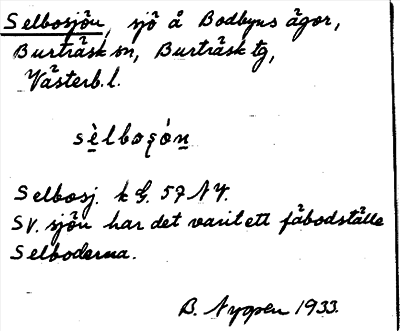 Selbosjön, sjö å Bodbyns ägor,
Burträsk sn, Burträsk tg,
Västerb. l.
sèlboʂón
Selbosj. k G. 57 NV.
SV. sjön har det varit ett fäbodställe
Selboderna.
B. Nygren 1933.